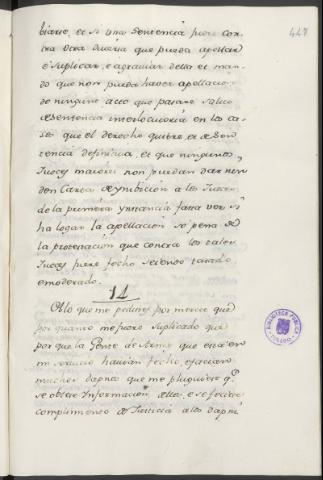 447
biario, et si una sentencia fuere con-
tra otra queria que pueda apellar
e suplicar, e agraviar della et man-
do que non pueda haver apellacion
do ninguno acto que pasare salvo
de sentencia interlocutoria en los ca-
sos que el derecho quiere, et de Sen-
tencia definitiva, et que ningunos
Jueces maiores non puedan dar nin
den Carta de ynibicion a los Jueces
de la primera ynstancia fasta ver si
ha logar la apellacion so pena de
la protestacion que contra los tales
Jueces fuere fecho seiendo tasado
e moderado.
14
A lo que me pedistes por merced que
por quanto me fuere suplicado que
por que la Gente de Armas que eran en
mi servicio havian fecho, e facian
muchos dapnos que me pluguiese qe.
se obiese Informacion dello, e se ficiese
complimiento de Justicia a los dapni
BIBLIOTECA PUBLICA
TOLEDO